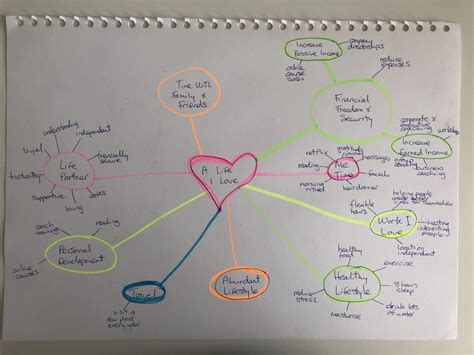 A Life
I Love
Time With
Family &
Friends
Financial
Freedom &
Security
Increase
Passive Income
company
directorships
reduce
expenses
online
course
sales
Increase
Earned Income
corporate &
executive
coaching
workshops
business
coaching
Me
Time
gratitude
journal
massages
facials
hairdresser
netflix
reading
morning
ritual
Work I
Love
helping people
flexible
hours
meeting
interesting
people
location
independent
Healthy
Lifestyle
healthy
food
exercise
8 hours
sleep
drink lots
of water
moisturise
reduce
stress
Abundant
Lifestyle
Travel
visit a
new place
every year
Personal
Development
reading
coach
training
online
courses
Life
Partner
understanding
independent
loyal
financially
secure
supportive
loving